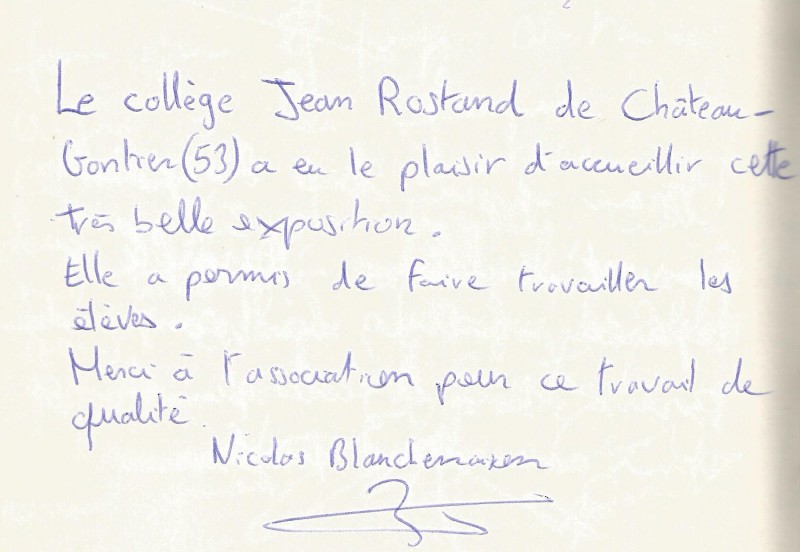 Le collège Jean Rostand de Château-
Gontier (53) a eu le plaisir d'accueillir cette
très belle exposition.
Elle a permis de faire travailler les
élèves.
Merci à l'association pour ce travail de
qualité.
Nicolas